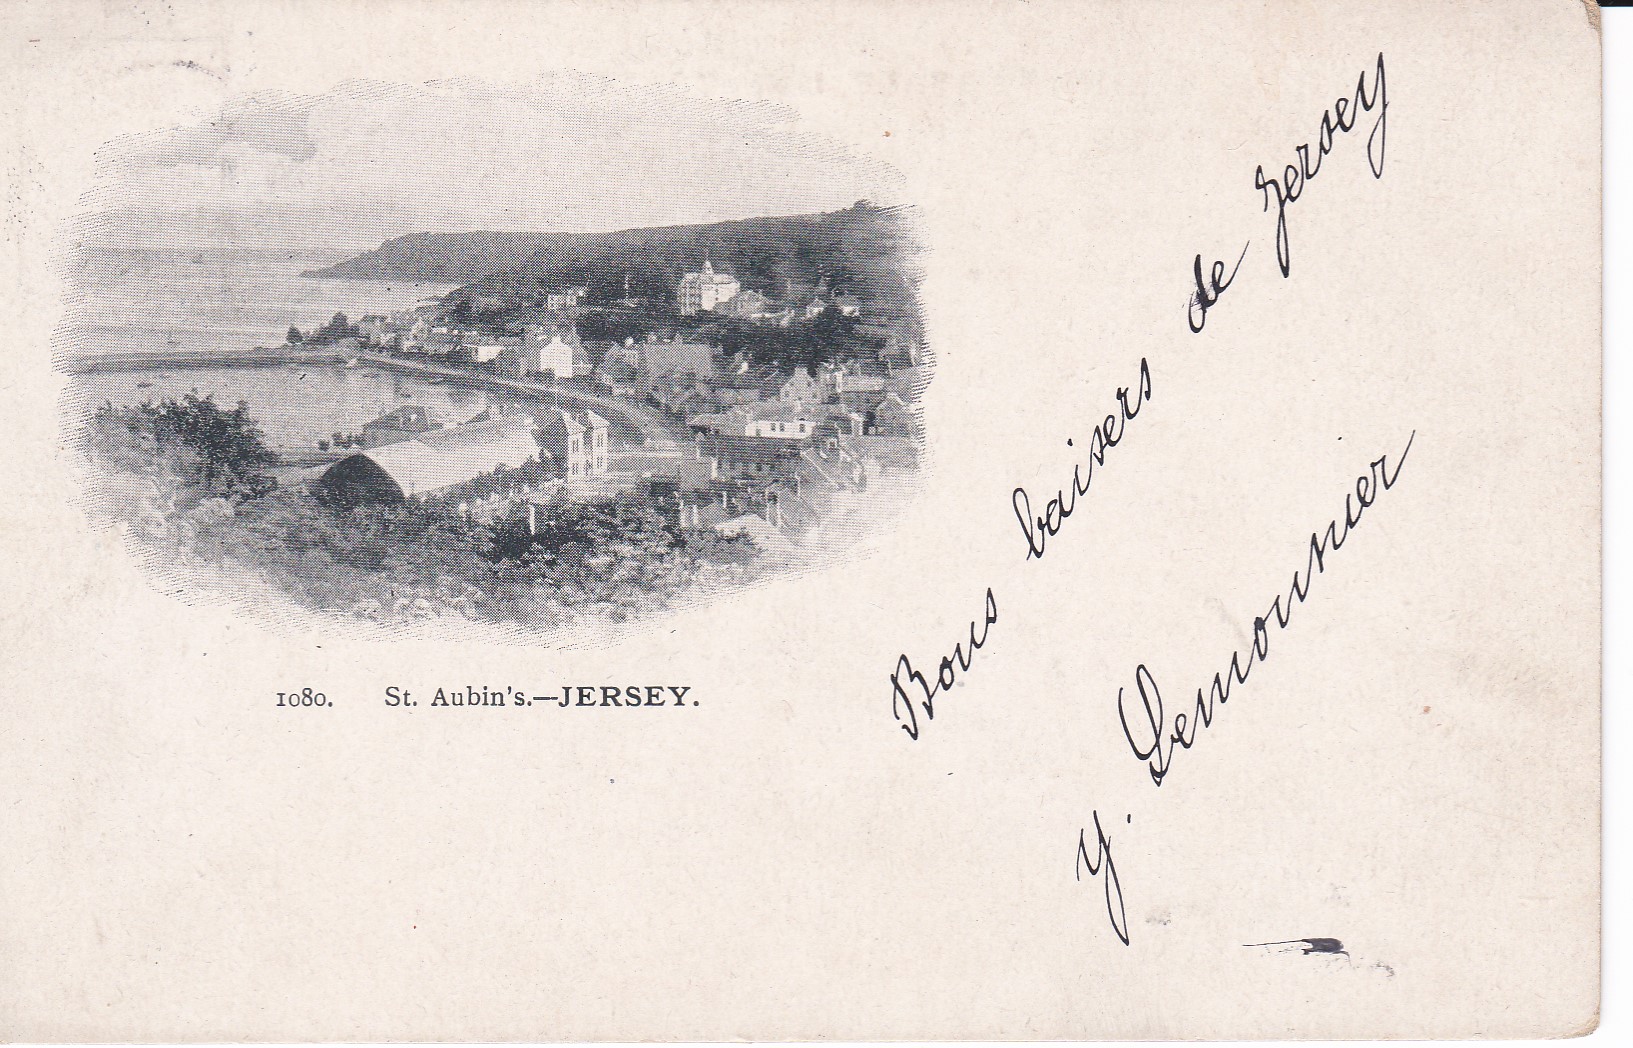 1080. St. Aubin's.—JERSEY.
Bons baisers de Jersey
Y. Lemounier